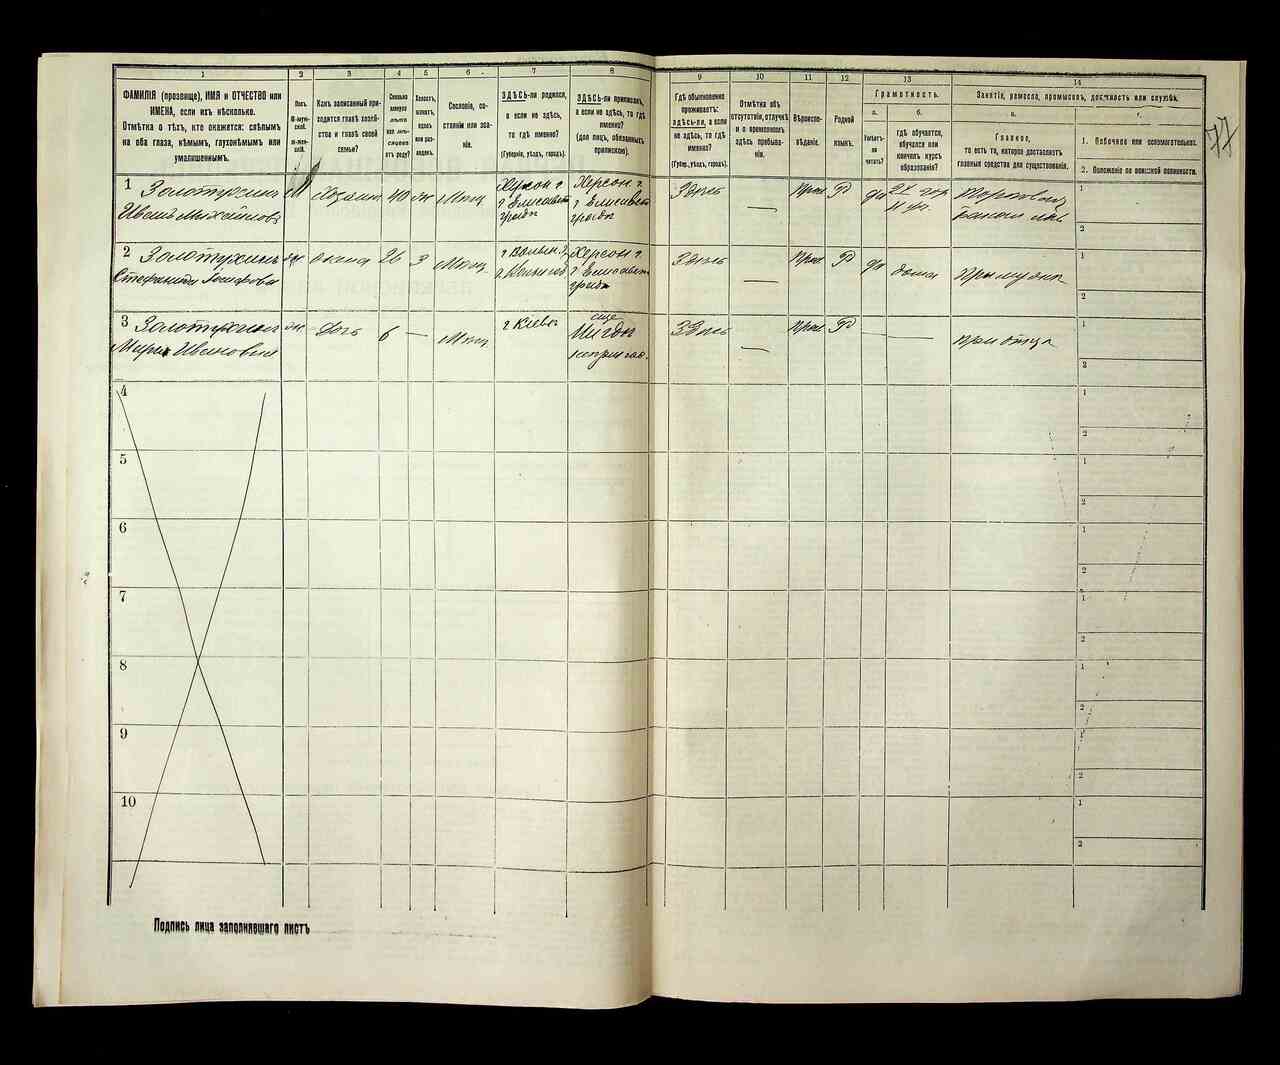 77
1
ФАМИЛІЯ (прозвище), ИМЯ и ОТЧЕСТВО или
ИМЕНА, если ихъ нѣсколько.
Отмѣтка о тѣхъ, кто окажется: слѣпымъ
на оба глаза, нѣмымъ, глухонѣмымъ или
умалишеннымъ.
2
Полъ.
М-муж-
ской.
Ж-жен-
скій.
3
Какъ записанный при-
ходится главѣ хозяй-
ства и главѣ своей
семьи?
4
Сколько
минуло
лѣтъ
или мѣ-
сяцевъ
отъ роду?
5
Холостъ,
женатъ,
вдовъ
или раз-
веденъ.
6
Сословіе, со-
стояніе или зва-
ніе.
7
ЗДѢСЬ-ли родился,
а если не здѣсь,
то гдѣ именно?
(Губернія, уѣздъ, городъ).
8
ЗДѢСЬ-ли приписанъ,
а если не здѣсь, то гдѣ
именно?
(для лицъ, обязанныхъ
припискою).
9
Гдѣ обыкновенно
проживаетъ:
здѣсь-ли, а если
не здѣсь, то гдѣ
именно?
(Губерн., уѣздъ, городъ).
10
Отмѣтка объ
отсутствіи, отлучкѣ
и о временномъ
здѣсь пребыва-
ніи.
11
Вѣроиспо-
вѣданіе.
12
Родной
языкъ.
13
Грамотность.
а.
Умѣетъ-
ли
читать?
б.
Гдѣ обучается,
обучался или
кончилъ курсъ
образованія?
14
Занятія, ремесла, промыселъ, должность или служба.
в.
Главное,
то есть то, которое доставляетъ
главныя средства для существованія.
г.
1. Побочное или вспомогательное.
2. Положеніе по воинской повинности.
1 Золотухинъ
Иванъ Михайловъ
М
Хозяинъ
40
ж
Мѣщ
Херсон г.
г Елисавет
градъ
Херсон г.
г Елисавет
градъ
Здѣсь
—
Прав
Р
да
1
2
2 Золотухина
Стефанида
ж
жена
26
З
Мѣщ
Херсон г.
г Елисавет
градъ
Здѣсь
—
Прав
Р
да
дома
При мужѣ
1
2
3 Золотухина
Марія Ивановна
ж
Дочь
6
—
Мѣщ
г Кіевъ
еще
Нигдѣ
Здѣсь
—
Прав
Р
—
при отцѣ
1
2
4
1
2
5
1
2
6
1
2
7
1
2
8
1
2
9
1
2
10
1
2
Подпись лица заполнявшаго листъ